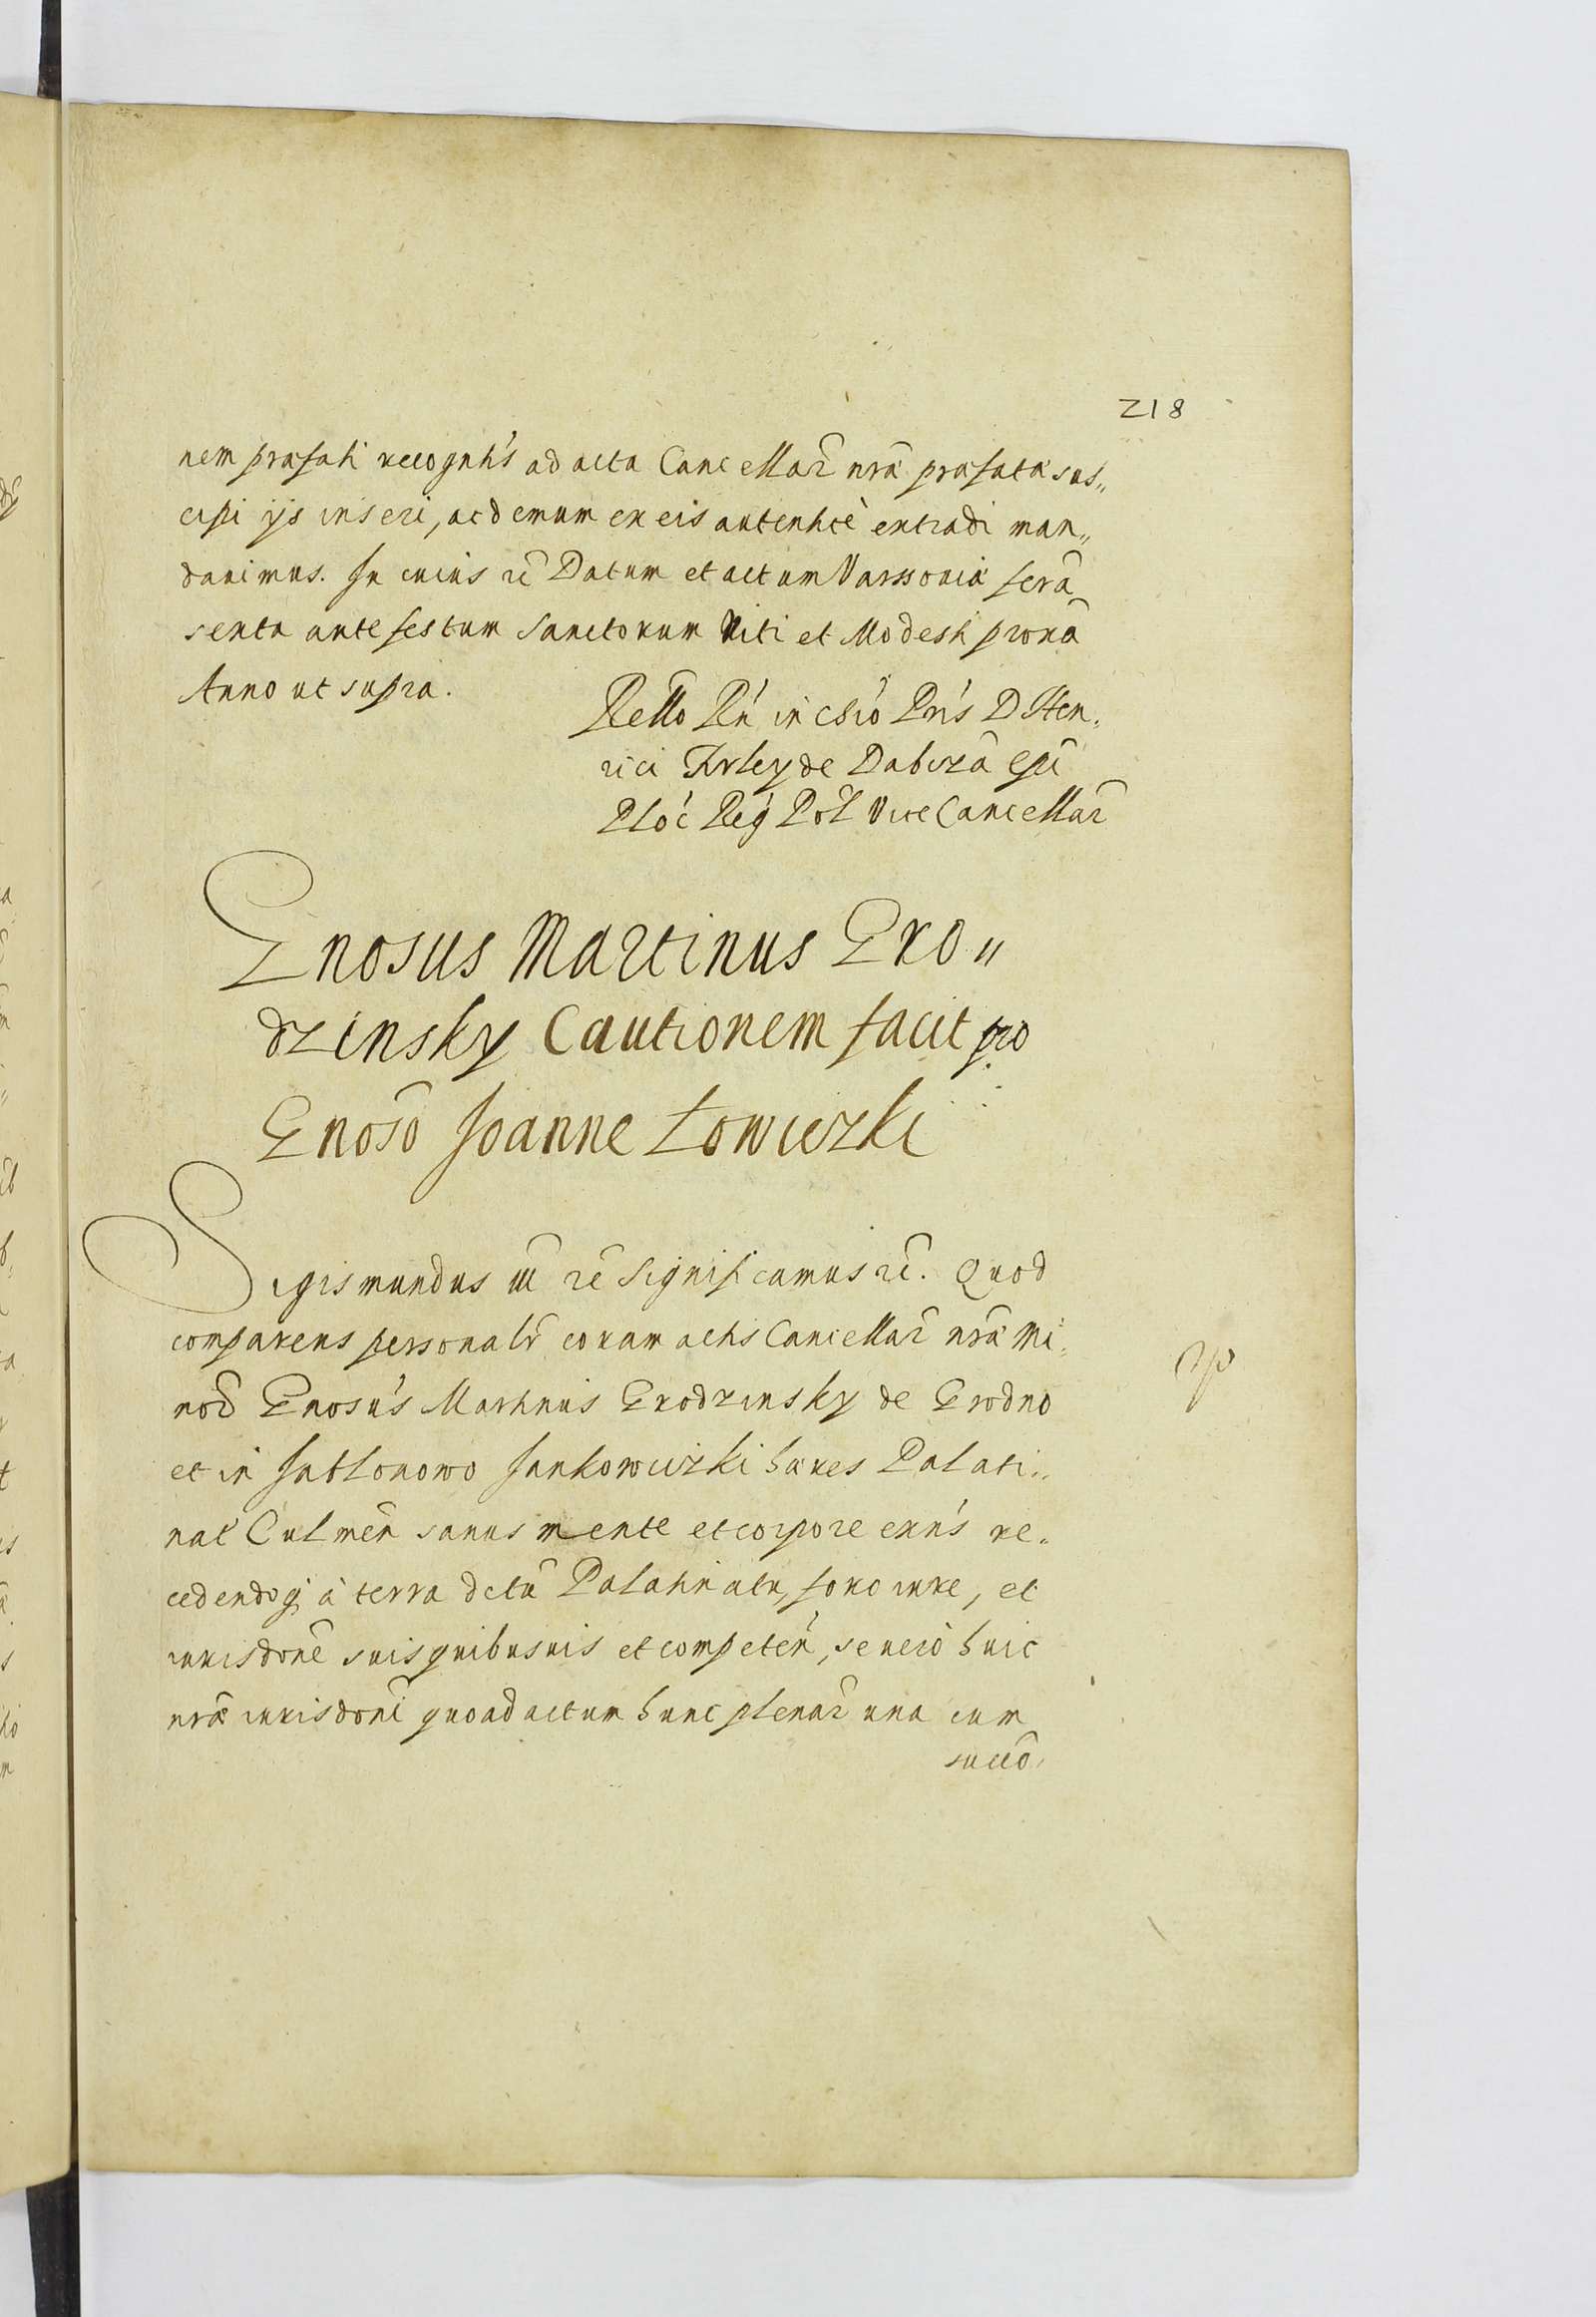 218
nem præfati recognñs ad acta Cancellar̃ nrã præfatã sus„
cipi ijs inseri, ac demum ex eis autenticè extradi man„
dauimus. In cuius rẽ Datum et actum Varssouiæ feria
sexta ante festum Sanctorum Viti et Modesti proxã
Anno ut supra.
Rello Rń in Chrõ Pris D Hen„
rici Firley de Dabrowicza Epĩ
Ploć Reg Pol ViceCancellar̃
Gnosus Martinus Gro„
dzinsky Cautionem facit pro
Gnosõ Joanne Łowiczki
Sigismundus III rẽ Significamus rẽ. Quod
comparens personalr̃ coram actis Cancellar̃ nræ Mi„
nor̃ Gnosus Martinus Grodzinsky de Grodno
et in Jabłonowo Jankowiczki hæres Palati„
nat́ Culmeń sanus mente et corpore exñs re„
cedendoq́ à terra dctũ Palatinatu, foro iure, et
iurisdone suis quibusuis et competeń, se uerò huic
nræ iurisdoni quoad actum hunc plenar̃ una cum
succõ„